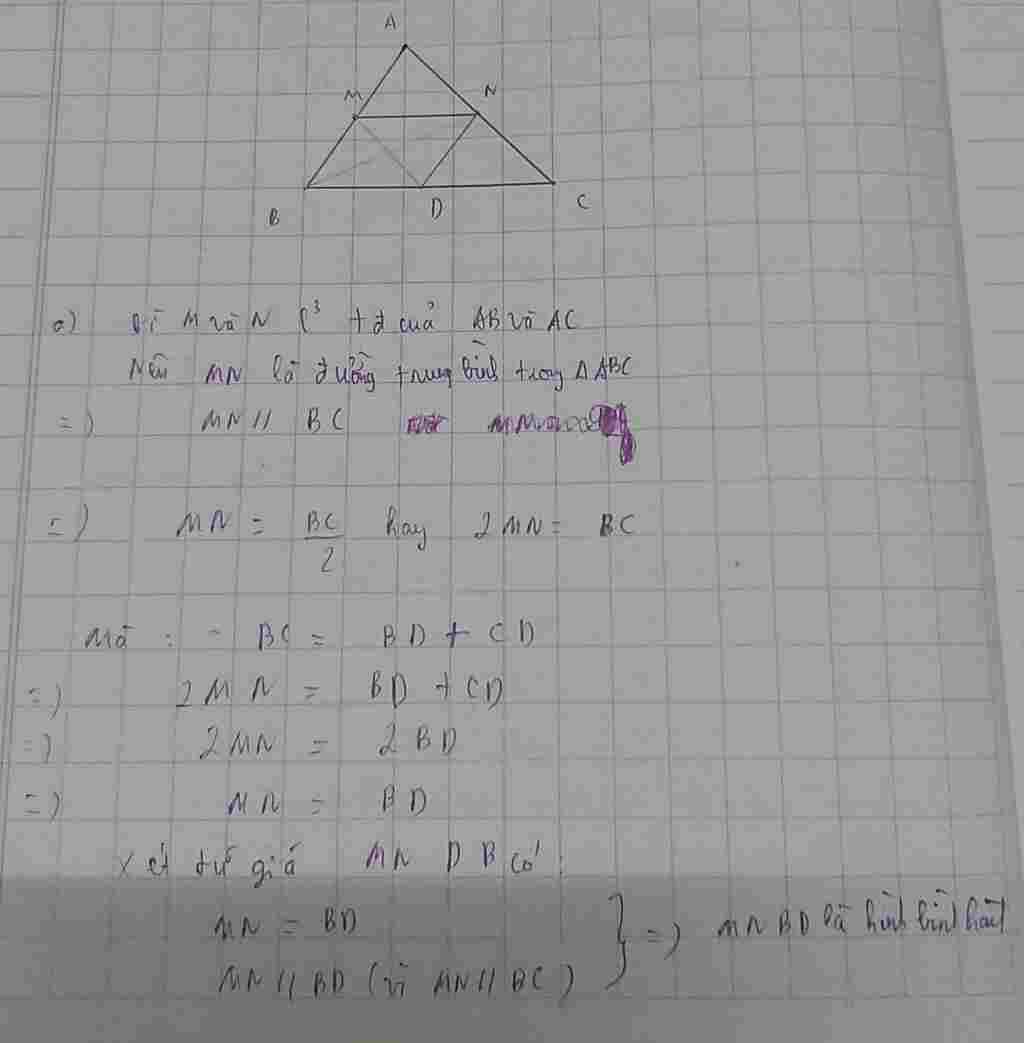 A
M
N
B
D
C
a) Vì M và N là tđ cuả AB và AC
Nên MN là đường trung bình trong Δ ABC
=) MN // BC
=) MN = BC/2 hay 2MN = BC
Mà : - BC = BD + CD
=) 2MN = BD + CD
=) 2MN = 2BD
=) MN = BD
Xét tứ giá MNDB có :
MN = BD
MN // BD (vì MN // BC) } =) MNBD là hình bình hành